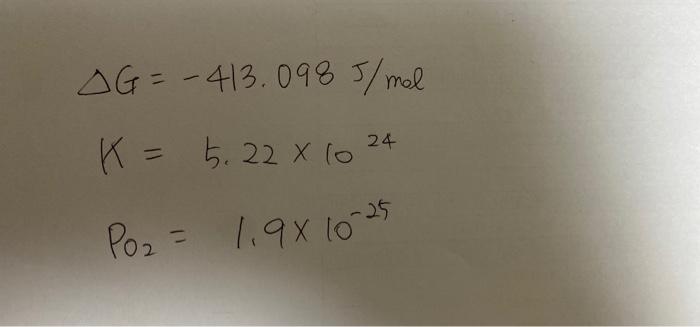 ΔG = -413.098 J/mol
K = 5.22 × 10²⁴
PO₂ = 1.9 × 10⁻²⁵